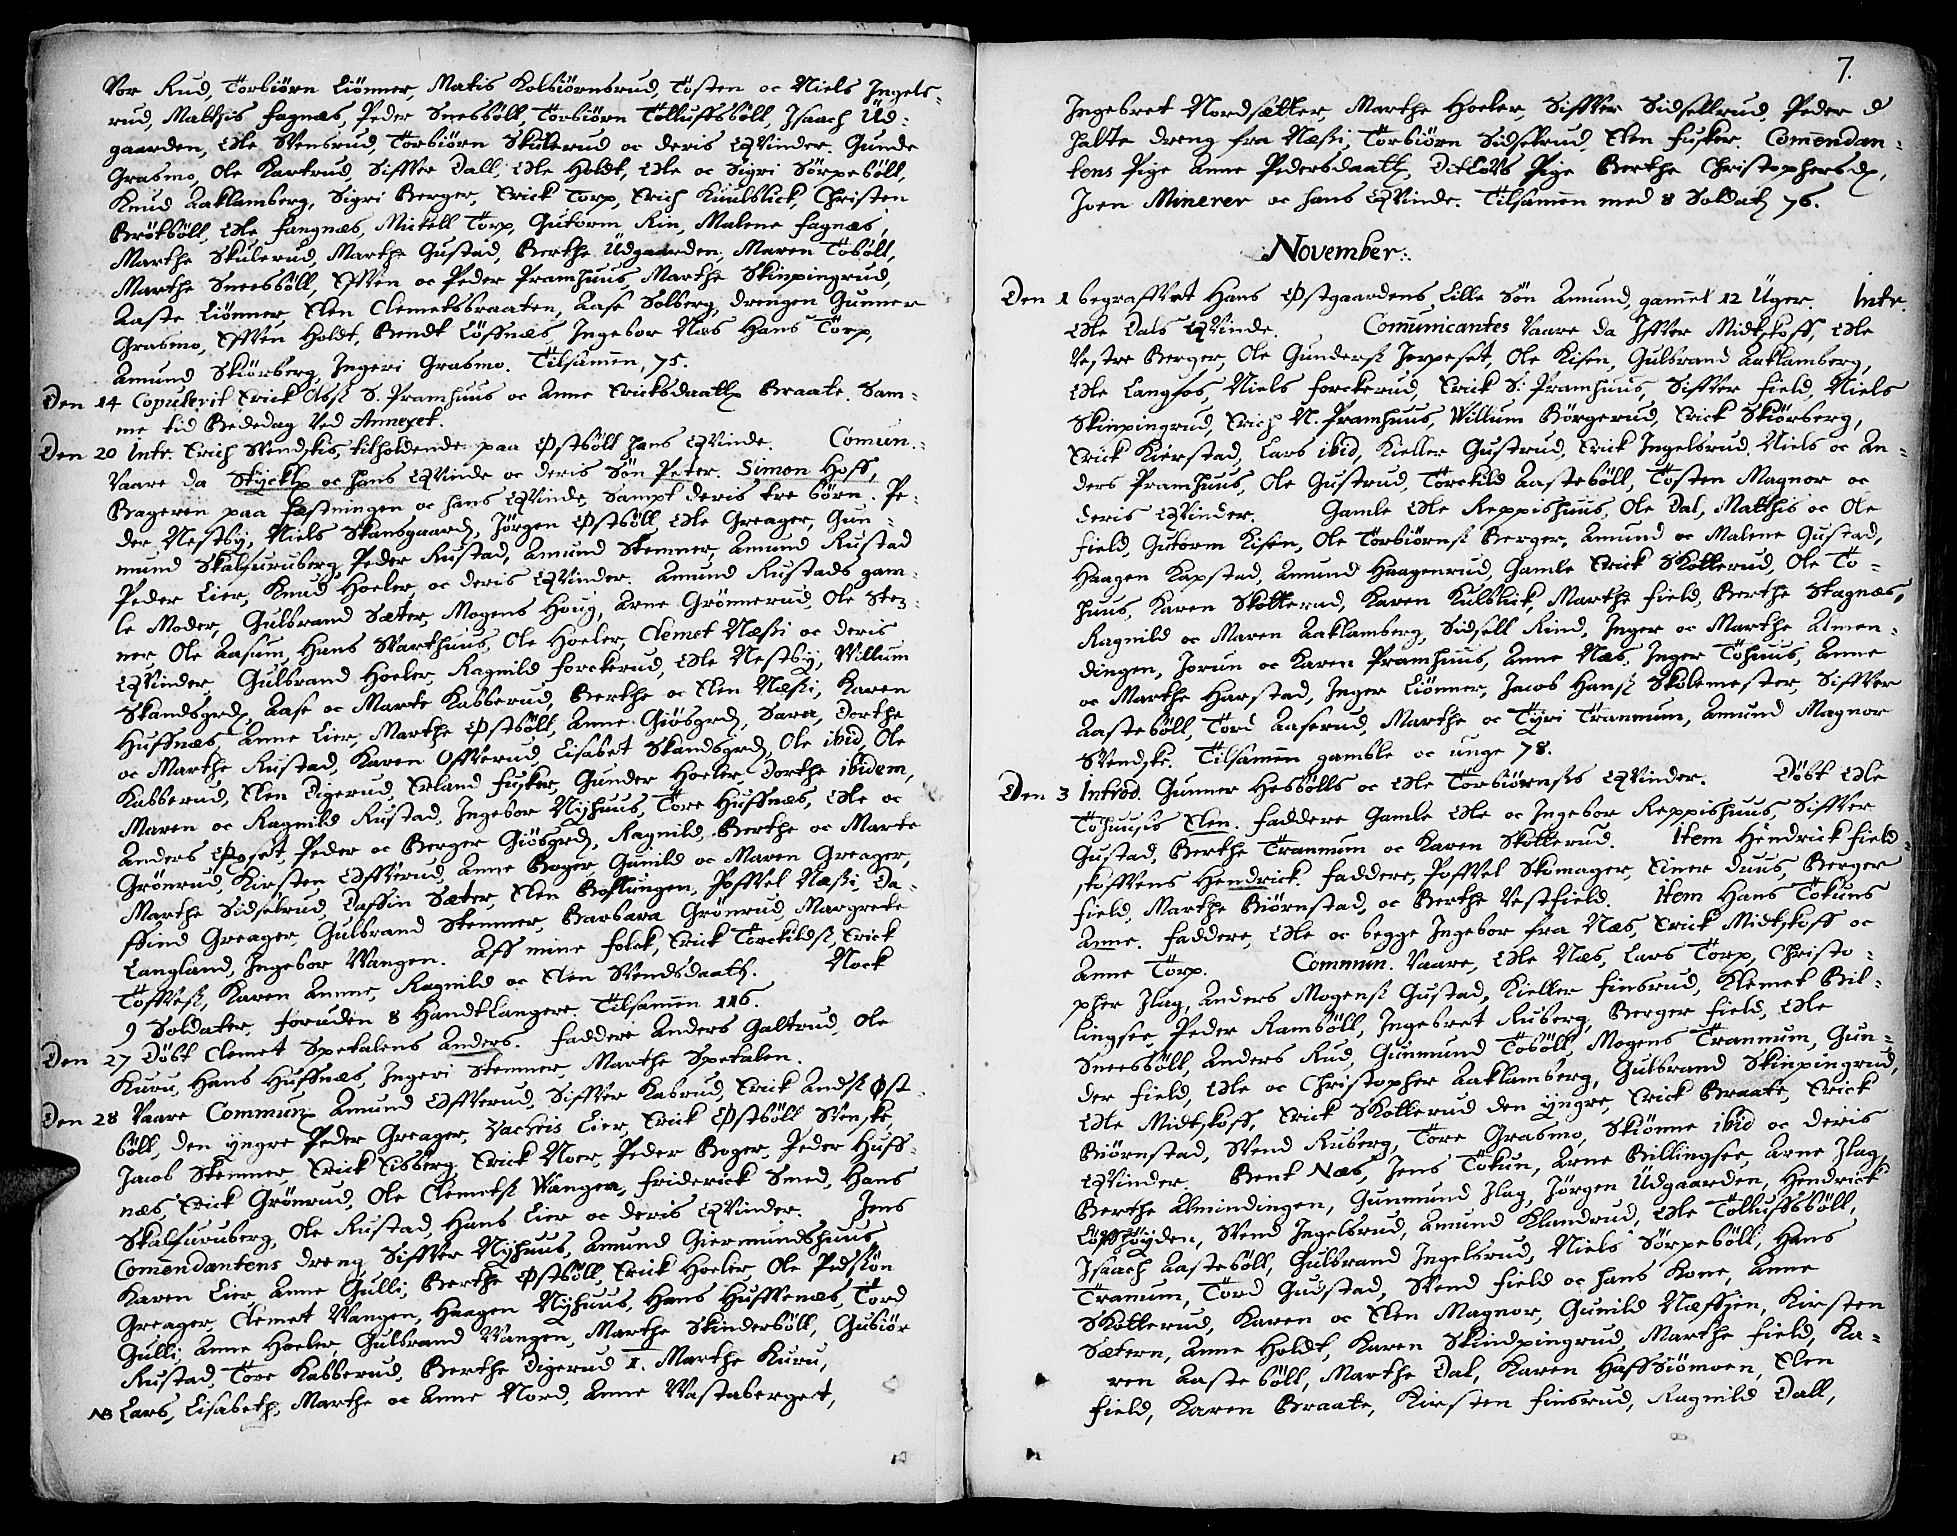 Vor Rud, Torbiörn Liönner, Matis Kolbiörnsrud, Tösten oc Niels Ingels-
rud, Matthis Fagnæs, Peder Sneesböll, Torbiörn Tolluffsböll, Isaach Üd-
gaarden, Ole Svensrud, Torbiörn Skullerud oc deris Qvinder. Gunde
Grasmo, Ole Kartrud, Siffver Dall, Ole Holdt, Ole oc Sigri Sörpeböll,
Knud Aaklamberg, Sigri Berger, Erick Torp, Erich Kuulblick, Christen
Brötböll, Ole Fangnæs, Mickell Torp, Gutorm Rin, Malene Fagnæs,
Marthe Skulerud, Marthe Gustad, Berthe Üdgaarden, Maren Toböll,
Marthe Sneesböll, Effven oc Peder Pramhuus, Marthe Skinpingrud,
Aaste Liönner, Elen Clemetsbraaten, Aase Solberg, drengen Gunner
Grasmo, Effven Holdt, Bendt Löffnæs, Ingebor Næs, Hans Torp,
Amund Skiörberg, Ingeri Grasmo. Tilsamen, 75.
Den 14 Copulerit Erick Olsß S. Pramhuus oc Anne Ericksdaatter Braate. Sam-
me tid Bededag ved Annexet.
Den 20 Intr. Erich Svendskis, tilholdende paa Östböll hans Qvinde. Comun.
Vaare da Stycklr oc hans Qvinde oc deris Sön Peter. Simon Hoff,
Bageren paa Fæstningen oc hans Qvinde, Sampt deris tre börn. Pe-
der Nestby, Niels Skansgaard, Jörgen Östböll, Ole Greager, Gun-
mund Skalfuruberg, Peder Rustad, Amund Stemner, Amund Rustad
Peder Lier, Knud Hoeler, oc deris Qvinder. Amund Rustads gam-
le Moder, Gulbrand Sæter, Mogens Houg, Arne Grönnerud, Ole Stem-
ner, Ole Aasum, Hans Svarthuus, Ole Hoeler, Clemet Næssi oc deris
Qvinder. Gulbrand Hoeler, Ragnild Forckerud, Ole Nestby, Villum
Skandsgrd, Aase oc Marte Kabberud, Berthe oc Elen Næssi, Karen
Huffnæs, Anne Lier, Marthe Östböll, Anne Giösgrd, Sara, Dorthe
oc Marthe Rustad, Karen Offverud, Lisabet Skandsgrd, Ole ibid, Ole
Kabberud, Elen Digerud, Erland Fusker, Gunder Hoeler, Dorthe ibidem,
Maren oc Ragnild Rustad, Ingebor Nyhuus, Tore Huffnæs, Ole oc
Anders Öseset, Peder oc Berger Giösgrd, Ragnild, Berthe oc Marte
Grönrud, Kirsten Offverud, Anne Boger, Gunild oc Maren Greager,
Marthe Sidselrud, Daffin Sæter, Elen Boslungen, Poffvel Næssi, Da-
ffind Greager, Gulbrand Stemner, Barbara Grönrud, Margrete
Langland, Ingebor Vangen. Aff mine folck, Erick Torckildsß, Erick
Toffvesß, Karen Amme, Ragnild oc Elen Svendsdaattr. Nock
9 Soldater, foruden 8 Handtlangere. Tilsamen 116.
Den 27 Döbt Clemet Spetalens Anders. Faddere Anders Galtrud, Ole
Kuru, Hans Huffnæs, Ingeri Stemner, Marthe Spetalen.
Den 28 Vaare Commun. Amund Offverud, Siffver Kabrud, Erick Andsß Öst-
böll, den yngre Peder Greager, Zacheis Lier, Erick Östböll Svenske,
Jacob Stemner, Erick Eisberg, Erick Noer, Peder Boger, Peder Huff-
næs, Erick Grönrud, Ole Clemetsß Vangen, Friderick Smed, Hans
Skalfuruberg, Ole Rustad, Hans Lier oc deris Qvinder. Jens
Comendantens dreng, Siffver Nyhuus, Amund Giermundshuus,
Karen Lier, Anne Gulli, Berthe Östböll, Erick Hoeler, Ole Pedssön
Greager, Clemet Vangen, Haagen Nyhuus, Hans Huffvenæs, Tord
Gulli, Anne Hoeler, Gulbrand Vangen, Marthe Skinderböll, Gubiör
Rustad, Tore Kabberud, Berthe Digerud I. Marthe Kuru,
NB Lars, Lisabeth, Marthe oc Anne Nord, Anne Vastaberget,
7.
Ingebret Nordsætter, Marthe Hoeler, Siffver Sidsellrud, Peder d
halte dreng fra Næssi, Torbiörn Sidselrud, Elen Fusker. Comendan-
tens Pige Anne Pedersdaattr, Ditlevs Pige Berthe Christophersdr,
Joen Minerer oc hans Qvinde. Tilsamen med 8 Soldatr 76.
November.
Den 1 begraffvet Hans Östgaardens lille Sön Amund, gamel 12 Üger. Intr.
Ole Dals Qvinde. Comunicantes Vaare da Iffver Midtskoff, Ole
Vestre Berger, Ole Gundersß Jerpeset, Ole Kisen, Gulbrand Aaklamberg,
Ole Langfos, Niels Forckerud, Erick S. Pramhuus, Siffver Field, Niels
Skinpingrud, Erich N. Pramhuus, Villum Börgerud, Erick Skiörberg,
Erick Kierstad, Lars ibid, Kieller Gustrud, Erick Ingelsrud, Niels oc An-
ders Pramhuus, Ole Gustrud, Torckild Aasteböll, Tösten Magnor oc
deris Qvinder. Gamle Ole Reppishuus, Ole Dal, Matthis oc Ole
Field, Gutorm Kisen, Ole Torbiörnsß Berger, Amund oc Malene Gustad,
Haagen Kapstad, Amund Haagenrud, Gamle Erick Skotterud, Ole To-
huus, Karen Skotterud, Karen Kulblick, Marthe Field, Berthe Skagnæs,
Ragnild oc Maren Aaklamberg, Sidsell Rind, Inger oc Marthe Almen-
dingen, Jorun oc Karen Pramhuus, Anne Næs, Inger Tohuus, Anne
oc Marthe Harstad, Inger Liönner, Jacob Hansß Skolemester, Siffver
Aasteböll, Tord Aaserud, Marthe oc Tyri Trannum, Amund Magnor
Svendske. Tilsamen gamble oc unge 78.
Den 3 Introd. Gunner Hesbölls oc Ole Torbiörnsßs Qvinder. Döbt Ole
Tohuusis Elen. Faddere Gamle Ole oc Ingebor Reppishuus, Siffver
Gustad, Berthe Trannum oc Karen Skotterud. Item Hendrick Field-
skoffvens Hendrick. Faddere, Poffvel Skomager, Einer Duus, Berger
Field, Marthe Biörnstad, oc Berthe Vestfield. Item Hans Tokuns
Anne. Faddere, Ole oc begge Ingebor fra Næs, Erick Midtskoff oc
Anne Torp. Commun. Vaare, Ole Næs, Lars Torp, Christo-
pher Ilag, Anders Mogensß Gustad, Kieller Finsrud, Klemet Bil-
lingsee, Peder Ramböll, Ingebret Ruberg, Berger Field, Ole
Sneesböll, Anders Rud, Gunmund Toböll, Mogens Trannum, Gun-
der Field, Ole oc Christopher Aaklamberg, Gulbrand Skinpingrud,
Ole Midtskoff, Erick Skotterud den yngre, Erick Braate, Erick
Biörnstad, Svend Ruberg, Tore Grasmo, Skiönne ibid oc deris
Qvinder. Bent Næs, Jens Tokun, Arne Billingsee, Arne Ilag,
Berthe Almindingen, Gunmund Ilag, Jörgen Üdgaarden, Hendrick
Löffhöyden, Svend Ingelsrud, Amund Klundrud, Ole Tolluffsböll,
Isaach Aasteböll, Gulbrand Ingelsrud, Niels Sörpeböll, Hans
Tranum, Tord Gudstad, Svend Field oc hans Kone, Anne
Skotterud, Karen oc Elen Magnor, Gunild Næssjen, Kirsten
Sætern, Anne Holdt, Karen Skindpingrud, Marthe Field, Ka-
ren Aasteböll, Marthe Dal, Karen Haffsiömoen, Elen
Field, Karen Braate, Kirsten Finsrud, Ragnild Dall,